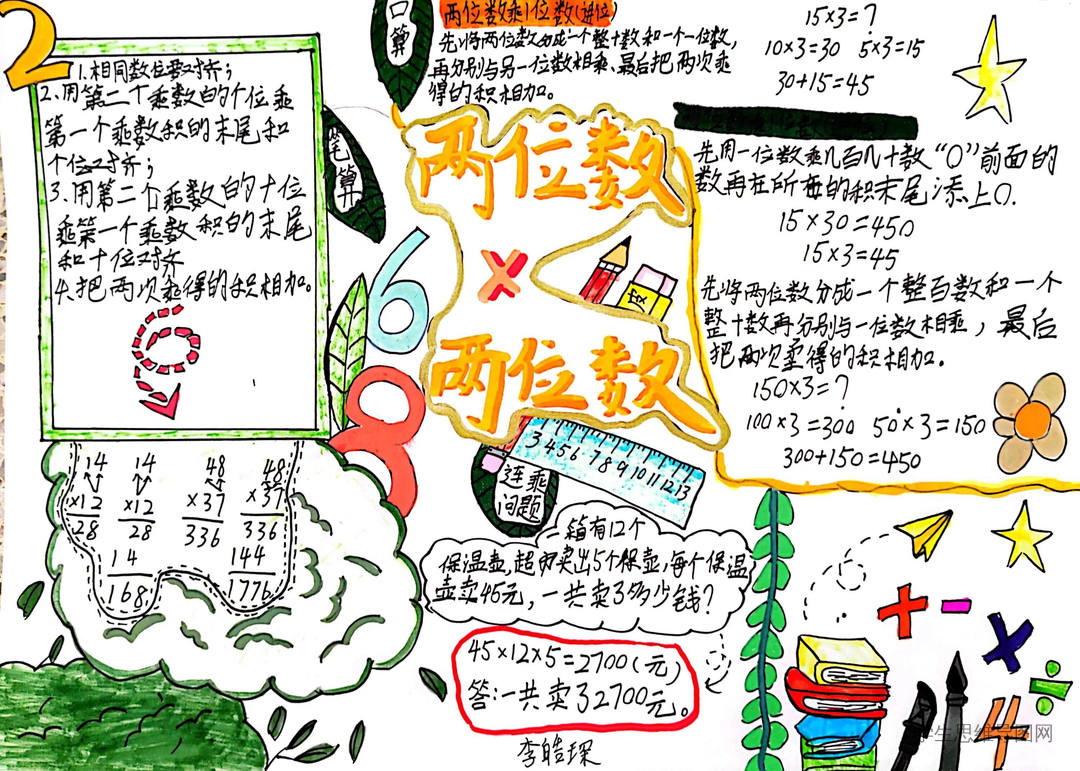 2
1.相同数位要对齐;
2.用第二个乘数的个位乘
第一个乘数积的末尾和
个位对齐;
3.用第二个乘数的十位
乘第一个乘数积的末尾
和十位对齐
4.把两次乘得的积相加。
口算
两位数乘1位数(进位)
先将两位数分成一个整十数和一个一位数,
再分别与另一位数相乘、最后把两次乘
得的积相加。
15×3=?
10×3=30 5×3=15
30+15=45
笔算
两位数
×
两位数
先用一位数乘几百几十数“0”前面的
数再在所在的积末尾添上0.
15×30=450
15×3=45
先将两位数分成一个整百数和一个
整十数再分别与一位数相乘,最后
把两次乘得的积相加.
150×3=?
100×3=300 50×3=150
300+150=450
6
8
3 4 5 6 7 8 9 10 11 12 13
连乘
问题
14 14 48 48
×12 ×12 ×37 ×37
28 28 336 336
14 144
168 1776
一箱有12个
保温壶,超市卖出5个保壶,每个保温
壶卖45元,一共卖了多少钱?
45×12×5=2700(元)
答:一共卖了2700元。
李皓琛
+ - × ÷
学生思维导图网